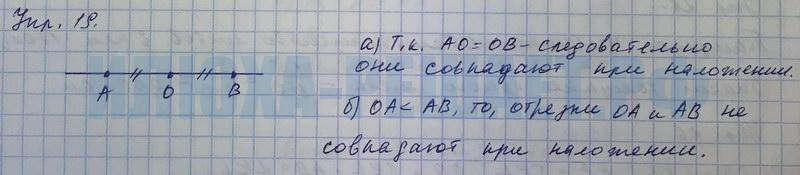 Упр. 19.
а) Т.к. AO = OB - следовательно
они совпадают при наложении.
A O B
б) OA < AB, то, отрезки OA и AB не
совпадают при наложении.